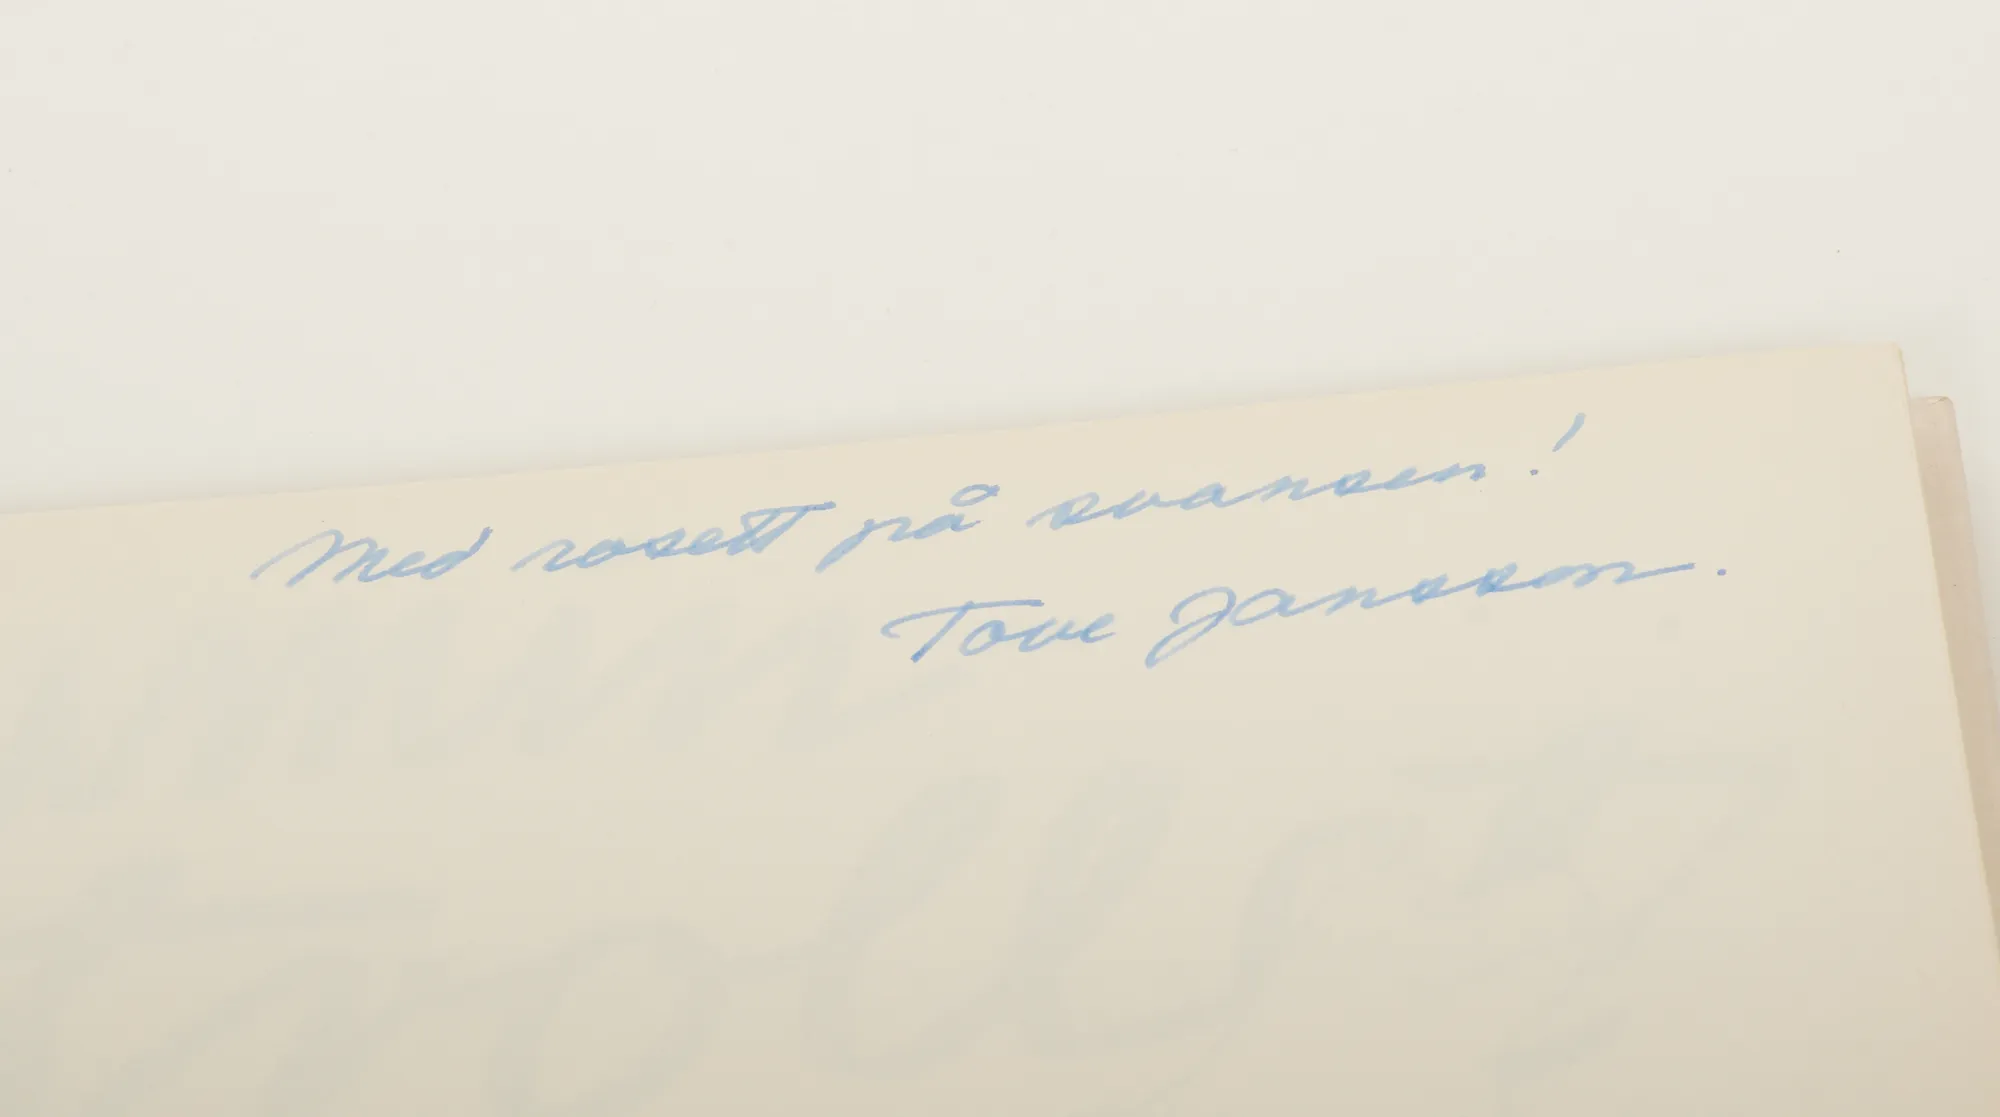 Med rosett på svansen!
Tove Jansson.